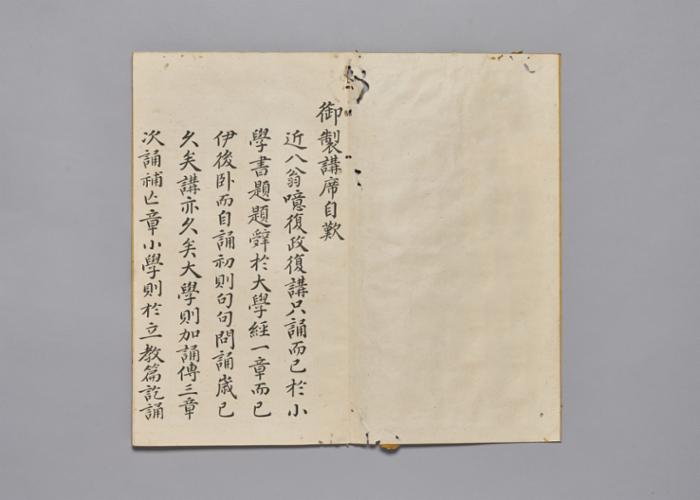 御製講席自歎
近八翁噫復政復講只誦而已於小
學書題題辭於大學經一章而已
伊後卧而自誦初則句句問誦歲已
久矣講亦久矣大學則加誦傳三章
次誦補亡章小學則於立教篇訖誦